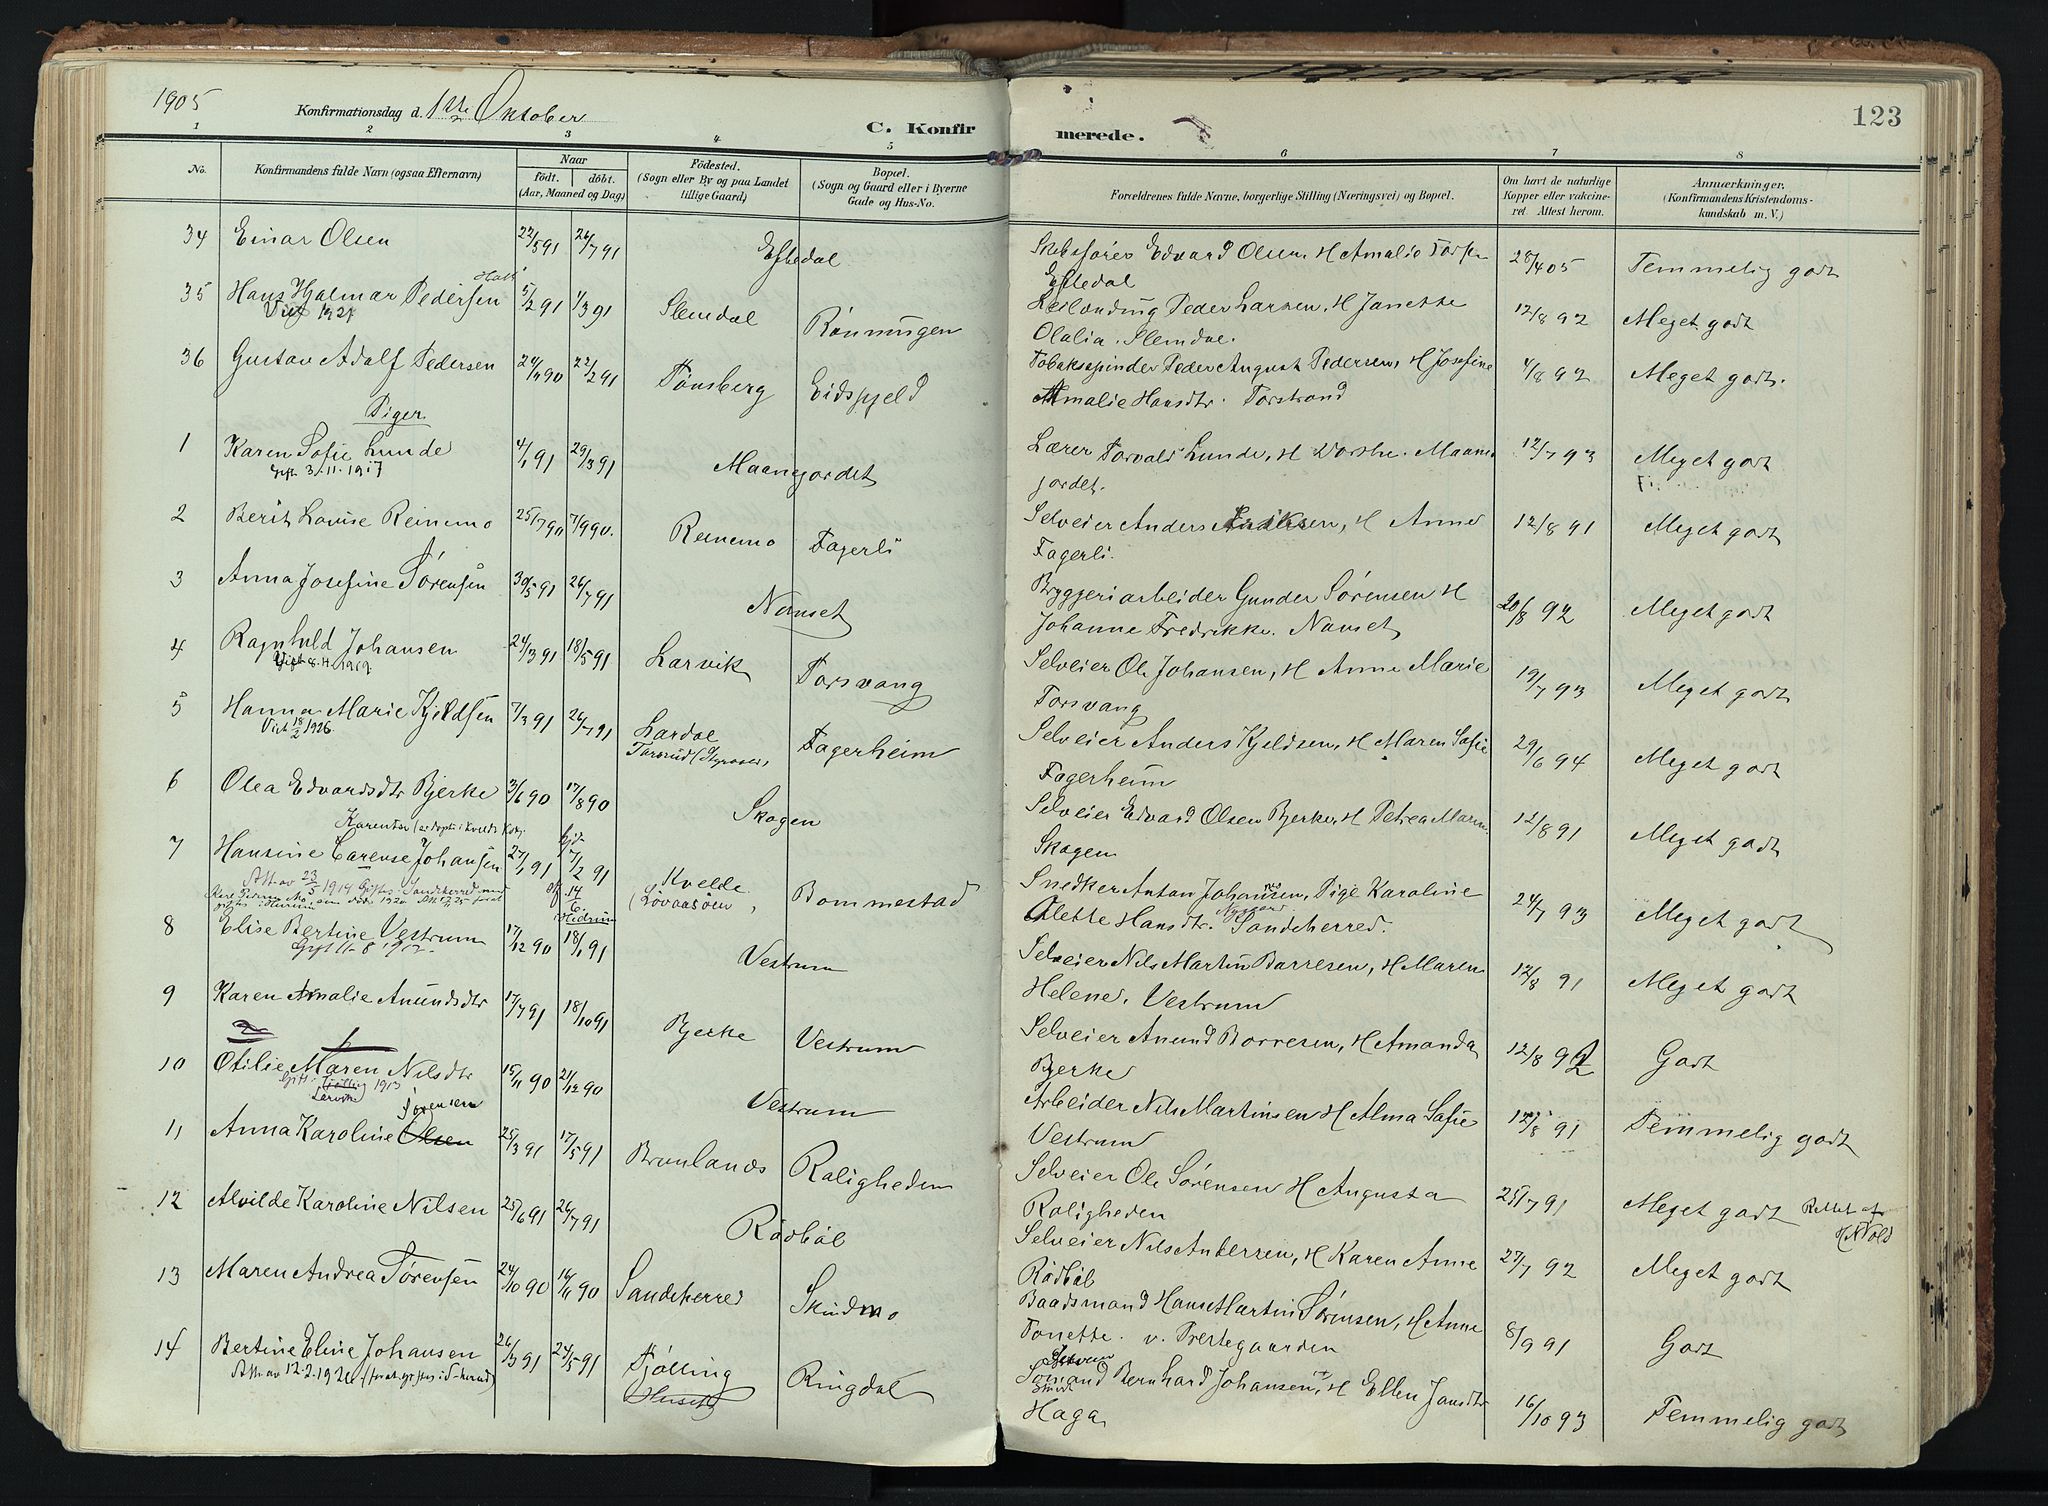 1905 Konfirmationsdag d. 1ste Oktober
C. Konfirmerede.
123
1 2 3 4 5 6 7 8
No.
Konfirmandens fulde Navn (ogsaa Efternavn)
Naar
født. døbt.
(Aar, Maaned og Dag)
Födested.
(Sogn eller By og paa Landet
tillige Gaard)
Bopæl.
(Sogn og Gaard eller i Byerne
Gade og Hus-No.
Forældrenes fulde Navne, borgerlige Stilling (Næringsvei) og Bopæl.
Om havt de naturlige
Kopper eller vakcine-
ret Attest herom.
Anmærkninger.
(Konfirmandens Kristendoms-
kundskab m. V.)
34 Einar Olsen 22/5 91 26/7 91 Eftedal Edvard Olsen, H Amalie 28/4 05 Temmelig godt
Eftedal
35 Hans Hjalmar Pedersen 5/2 91 1/3 91 Slemdal Rönningen Leilending Peder Larsen, H Janette 12/8 92 Meget godt
Viet 1921
Olalia. Slemdal.
36 Gustav Adolf Pedersen 22/2 91 Tønsberg Eidsfjeld Tobaksspinder Peder August Pedersen, H Josefine 4/8 92 Meget godt.
Amalie Hansdtr. Torstrand
Piger
1 Karen Sofie Lunde 4/1 91 29/3 91 Maanejordet Lærer Torvald Lunde, H Dorthe. Maane- 12/7 93 Meget godt
Gift 3.11.1917
jordet.
2 Berit Lovise Reinemo 25/7 90 7/9 90. Reinemo Fagerli Selveier Anders Eriksen, H Anne 12/8 91 Meget godt
Fagerli.
3 Anna Josefine Sørensen 30/5 91 26/7 91 Nanset Bryggeriarbeider Gunder Sørensen H 20/8 92 Meget godt
Johanne Fredrikke. Nanset
4 Ragnhild Johansen 24/3 91 18/5 91 Larvik Torsvang Selveier Ole Johansen, H Anne Marie 19/7 93 Meget godt
Torsvang
5 Hanna Marie Kjeldsen 7/3 91 26/7 91 Lardal Fagerheim Selveier Anders Kjeldsen, H Maren Sofie 29/6 94 Meget godt
Viet 18/2 1926.
Fagerheim
6 Olea Edvardsdtr Bjerke 3/6 90 17/8 90 Skogen Selveier Edvard Olsen Bjerke, H Petrea Maren 12/8 91 Meget godt
Skogen
7 Hansine Carense Johansen 27/1 91 7/2 91 Kvelde Bommestad Snedker Anton Johansen, Pige Karoline 24/7 93 Meget godt
Att. av 23/5 1914
14/6.
Olette Hansdtr. Sandeherred.
8 Elise Bertine Vestrum 17/12 90 18/1 91 Vestrum Selveier Nils Martin Borresen, H Maren 12/8 91 Meget godt
Helene, Vestrum
9 Karen Amalie Anundsdtr 17/7 91 18/10 91 Bjerke Vestrum Selveier Anund Borresen, H Amanda 12/8 92 Godt
Bjerke
10 Otilie Maren Nilsdtr 15/11 90 21/12 90 Vestrum Arbeider Nils Martinsen H Alma Sofie 12/8 91 Temmelig godt
Gift i Tjølling 1913
Larvik
Vestrum
Sørensen
11 Anna Karoline Olsen 25/3 91 17/5 91 Brunlanes Roligheden Selveier Ole Sørensen H Augusta 25/7 91 Meget godt Rettet af
Roligheden
H. Wold
12 Alvilde Karoline Nilsen 25/6 91 26/7 91 Rödböl Selveier Nils Andersen, H Karen Anne 27/7 92 Meget godt
Rödböl
13 Maren Andrea Sørensen 24/10 90 16/11 90 Sandeherred Skindmo Baadsmand Hans Martin Sørensen, H Anne 8/9 91 Godt
Tonette. v. Prestegaarden
14 Bertine Eline Johansen 26/3 91 24/5 91 Tjølling Ringdal Sømand Bernhard Johansen, H Ellen Jansdtr 16/10 93 Temmelig godt
Att. av 12.2.192
Haga